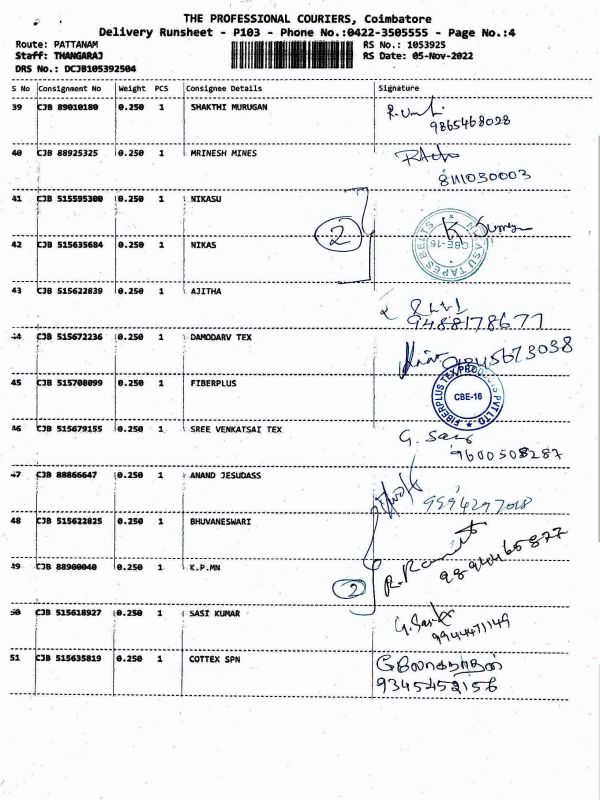 THE PROFESSIONAL COURIERS, Coimbatore
Delivery Runsheet - P103 - Phone No.:0422-3505555 - Page No.:4
Route: PATTANAM
RS No.: 1053925
Staff: THANGARAJ
RS Date: 05-Nov-2022
DRS No.: DCJB105392504
S No Consignment No Weight PCS Consignee Details Signature
39 CJB 89010180 0.250 1 SHAKTHI MURUGAN
9865468028
40 CJB 88925325 0.250 1 MRINESH MINES
8111030003
41 CJB 515595300 0.250 1 NIKASU
2
CBE-16
42 CJB 515635684 0.250 1 NIKAS
43 CJB 515622839 0.250 1 AJITHA
9488178677
44 CJB 515672236 0.250 1 DAMODARV TEX
45 CJB 515708099 0.250 1 FIBERPLUS
FIBERPLUS TEX PRODUCTS PVT LTD
CBE-16
46 CJB 515679155 0.250 1 SREE VENKATSAI TEX
9600508287
47 CJB 88866647 0.250 1 ANAND JESUDASS
9994297018
48 CJB 515622825 0.250 1 BHUVANESWARI
49 CJB 88900040 0.250 1 K.P.MN
2
50 CJB 515618927 0.250 1 SASI KUMAR
9944471149
51 CJB 515635819 0.250 1 COTTEX SPN
9345452156